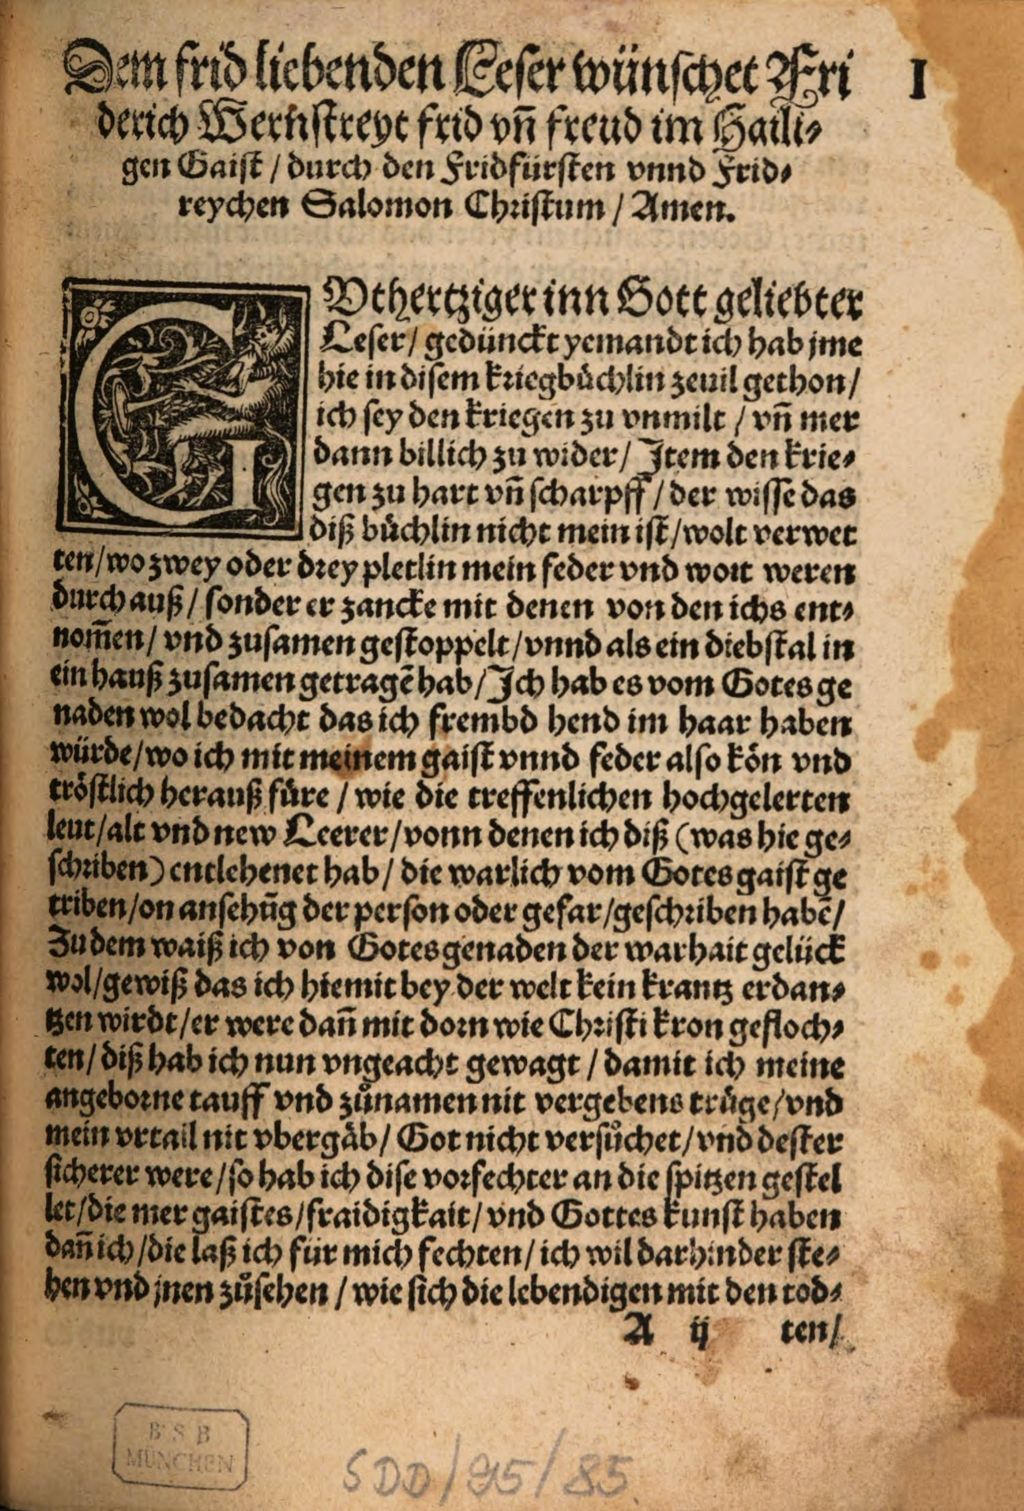 Dem frid liebenden Leser wünschet Fri
derich Wernstreyt frid vñ freud im Haili⸗
gen Gaist / durch den Fridfürsten vnnd Frid⸗
reychen Salomon Christum / Amen.
I
GVthertziger inn Gott geliebter
Leser / gedünckt yemandt ich hab jme
hie in disem kriegbůchlin zeuil gethon /
ich sey den kriegen zu vnmilt / vñ mer
dann billich zu wider / Item den krie⸗
gen zu hart vñ scharpff / der wisse das
diß bůchlin nicht mein ist / wolt verwet
ten / wo zwey oder drey pletlin mein feder vnd wort weren
durch auß / sonder er zancke mit denen von den ichs ent⸗
nom̃en / vnd zusamen gestoppelt / vnnd als ein diebstal in
ein hauß zusamen getragẽ hab / Ich hab es vom Gotes ge
naden wol bedacht das ich frembd hend im haar haben
würde / wo ich mit meinem gaist vnnd feder also kön vnd
tröstlich herauß fůre / wie die treffenlichen hochgelerten
leut / alt vnd new Leerer / vonn denen ich diß (was hie ge⸗
schriben) entlehenet hab / die warlich vom Gotes gaist ge
triben / on ansehũg der person oder gefar / geschriben habẽ /
Zu dem waiß ich von Gotes genaden der warhait gelück
wol / gewiß das ich hiemit bey der welt kein krantz erdan⸗
tzen wirdt / er were dañ mit dorn wie Christi kron gefloch⸗
ten / diß hab ich nun vngeacht gewagt / damit ich meine
angeborne tauff vnd zůnamen nit vergebens trůge / vnd
mein vrtail nit vbergåb / Got nicht versůchet / vnd dester
sicherer were / so hab ich dise vorfechter an die spitzen gestel
let / die mer gaistes / fraidigkait / vnd Gottes kunst haben
dañ ich / die laß ich für mich fechten / ich wil darhinder ste⸗
hen vnd jnen zůsehen / wie sich die lebendigen mit den tod⸗
A ij ten /
B S B
MÜNCHEN
SDD/95/85